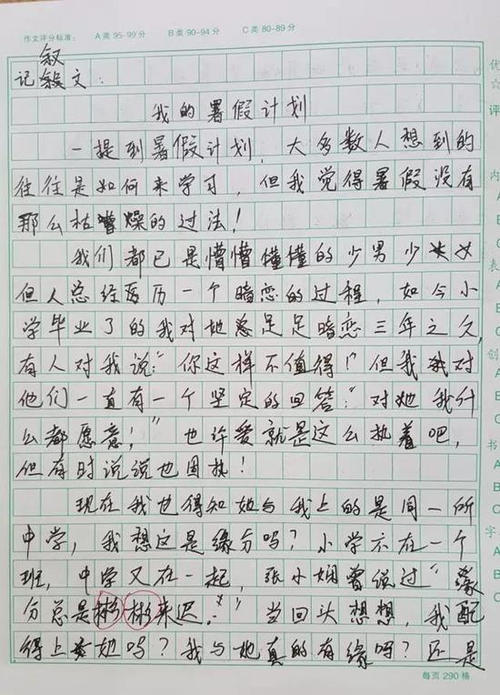 作文评分标准: A类 95-99分 B类 90-94分 C类 80-89分
叙
记叙文:
我的暑假计划
一提到暑假计划,大多数人想到的
往往是如何来学习,但我觉得暑假没有
那么枯燥的过法!
我们都已是懵懵懂懂的少男少女
但人总经历一个暗恋的过程,如今小
学毕业了的我对她足足暗恋三年之久
有人对我说:“你这样不值得!”但我对
他们一直有一个坚定的回答:“对她我什
么都愿意!”也许爱就是这么执着吧,
但有时说说也固执!
现在我也得知她与我上的是同一所
中学,我想这是缘分吗?小学不在一个
班,中学又在一起,张小娴曾说过“缘
分总是彬彬来迟。”当回头想想,我配
得上她吗?我与她真的有缘吗?还是
每页290格
优
☆
评
内
表
创
书
字